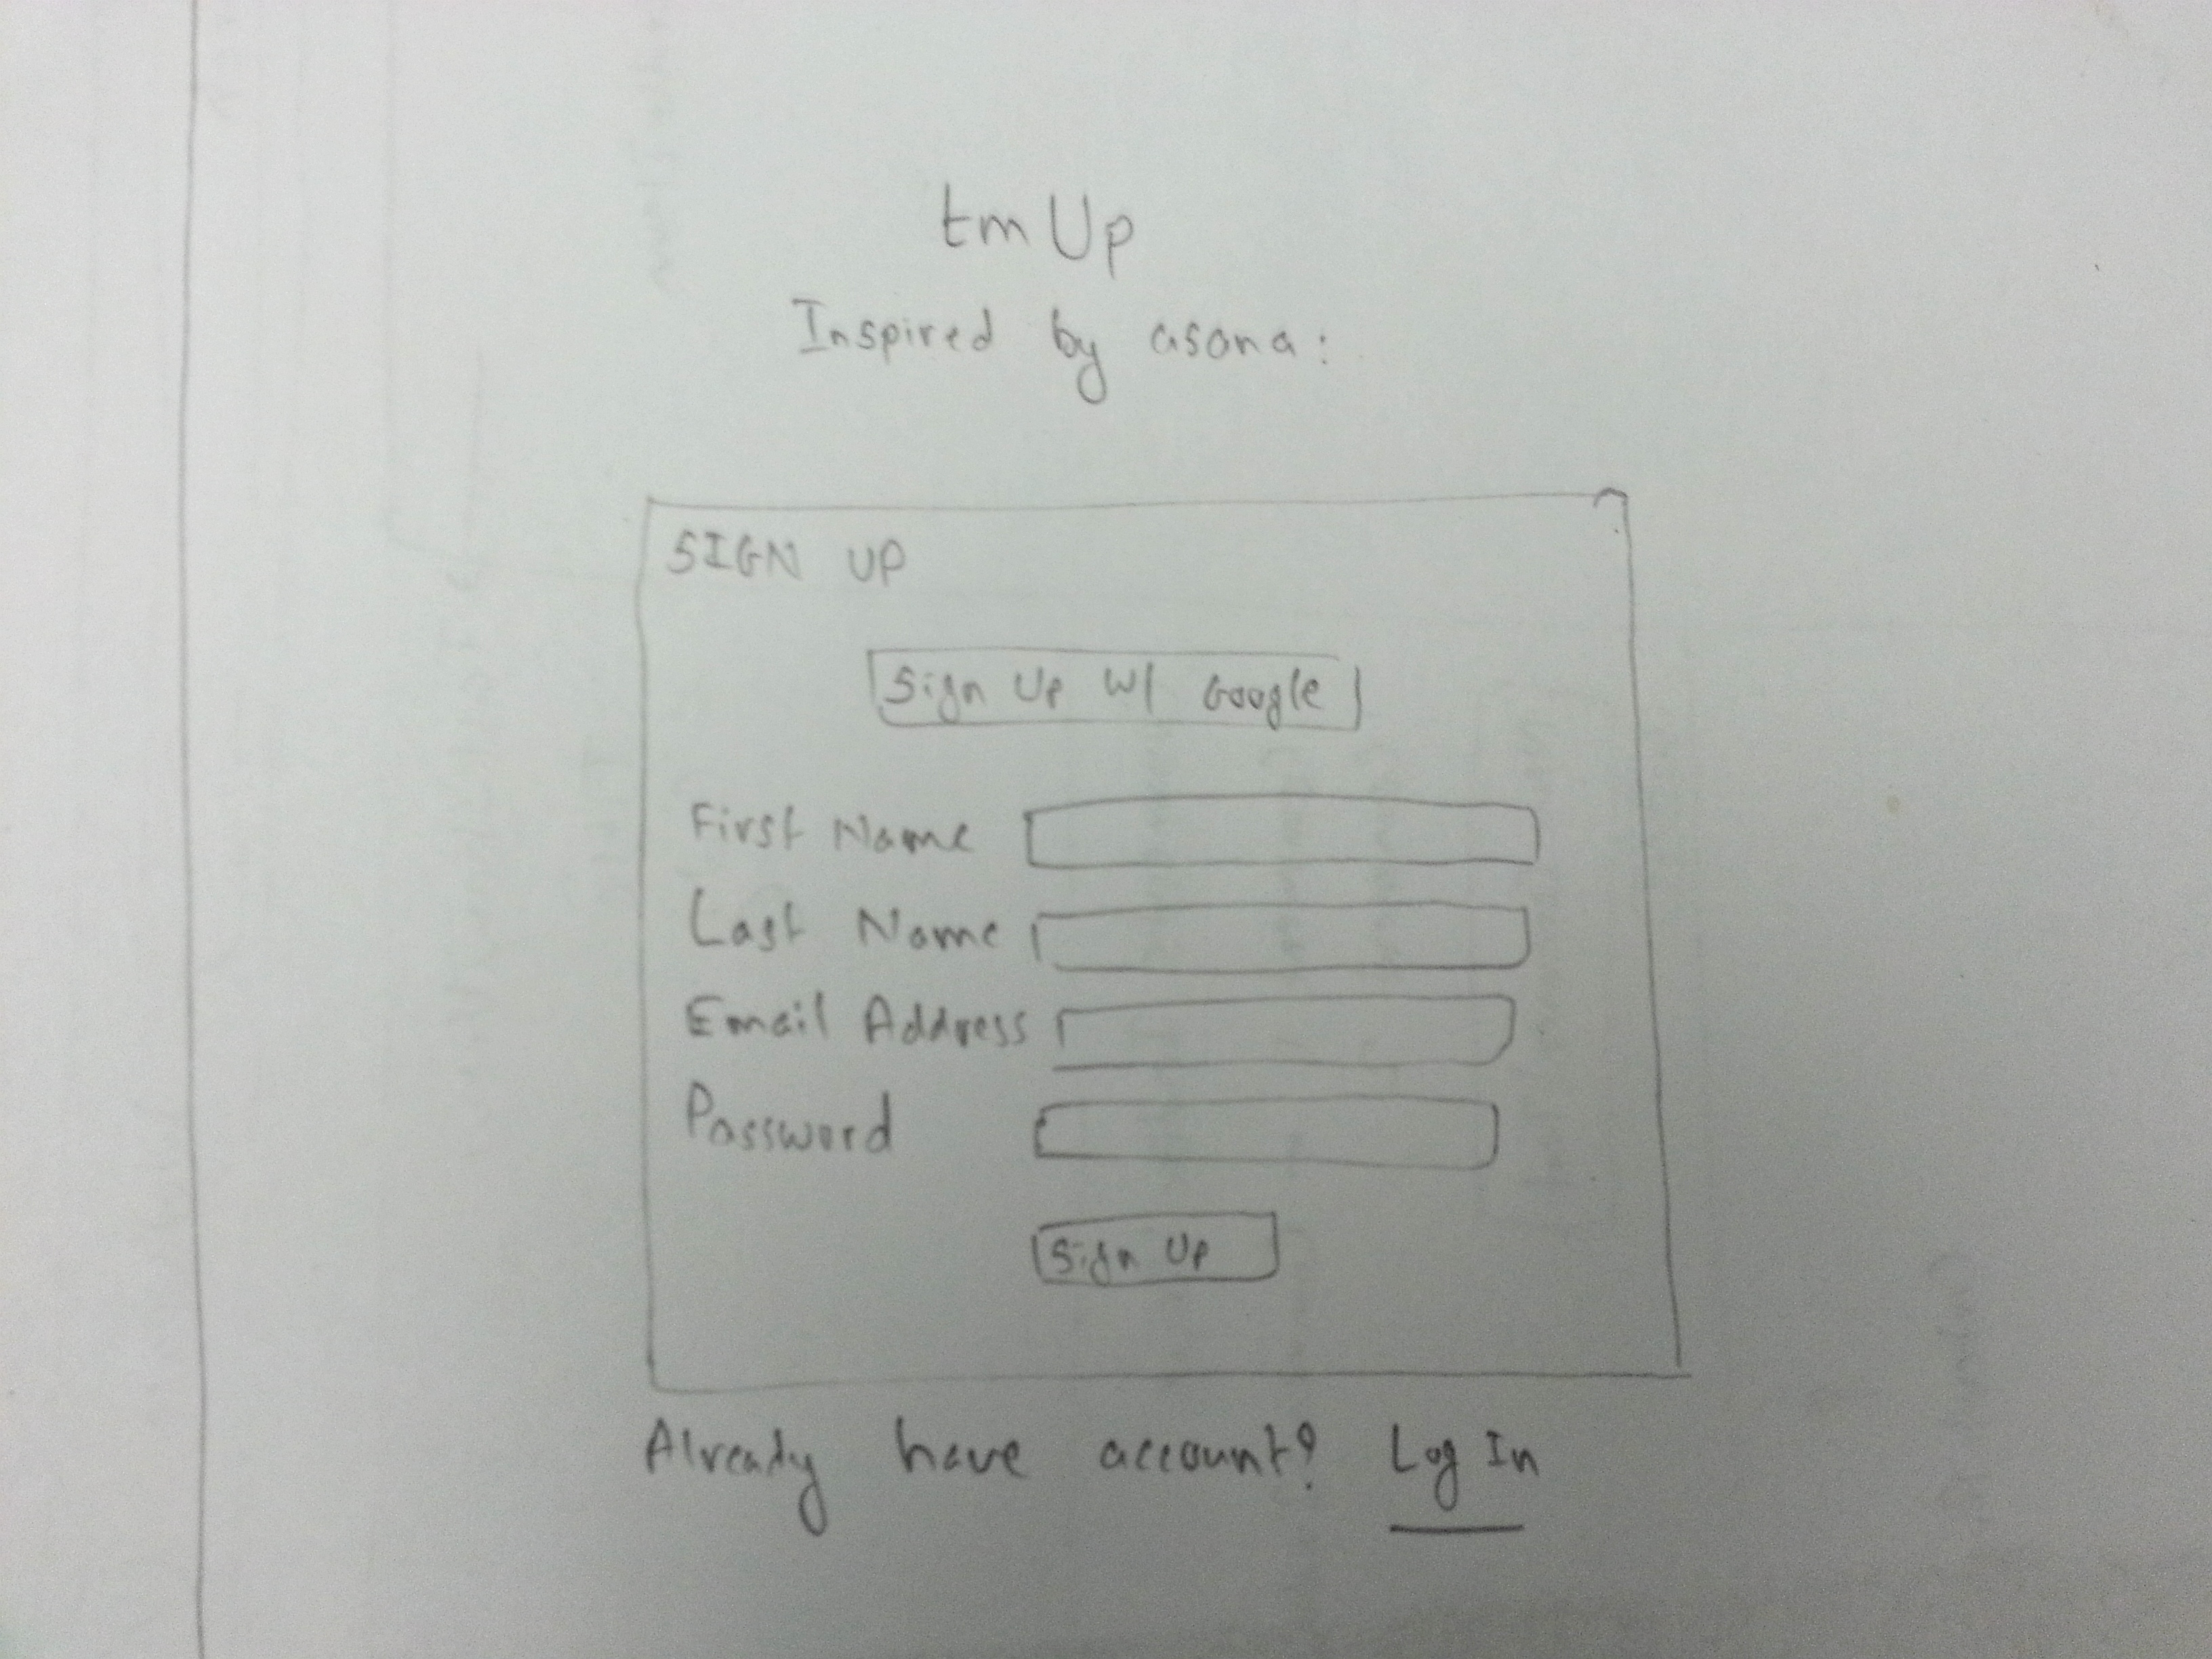 tmUp
Inspired by asana:
SIGN UP
Sign Up w/ Google
First Name
Last Name
Email Address
Password
Sign Up
Already have account? Log In